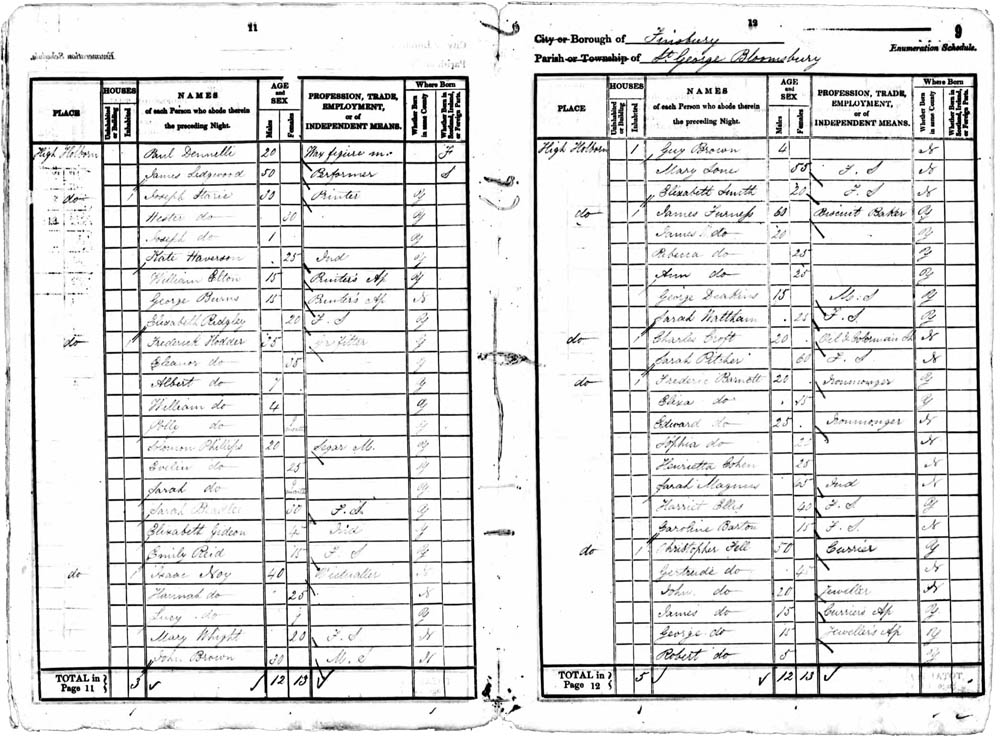 11
PLACE HOUSES Uninhabited or Building Inhabited NAMES of each Person who abode therein the preceding Night. AGE and SEX Males Females PROFESSION, TRADE, EMPLOYMENT, or of INDEPENDENT MEANS. Where Born Whether Born in same County Whether Born in Scotland, Ireland, or Foreign Parts.
High Holborn Paul 20 Wax figure m. F
James Ledgwood 50 Performer S
do 1 Joseph 30 Printer Y
Hester do 30 Y
Joseph do 1 Y
Kate Haverson 25 Ind Y
William Elton 15 Printer's Ap Y
George Burns 15 Printer's Ap N
Elizabeth Ridgley 20 F. S Y
do 1 Frederick Hodder 35 Y
Eleanor do 35 Y
Albert do 7 Y
William do 4 Y
Polly do Y
Solomon Phillips 20 Segar M. Y
Evelin do 25 Y
Sarah do Y
Sarah 50 F. S. Y
Elizabeth Gideon 45 Ind Y
Emily Reid 15 F. S Y
do 1 Isaac Noy 40 N
Hannah do 25 N
Lucy do Y
Mary Whight 20 F. S N
John Brown 30 M. S N
TOTAL in Page 11 3 12 13
12
9
City or Borough of Finsbury
Enumeration Schedule.
Parish or Township of St George Bloomsbury
PLACE HOUSES Uninhabited or Building Inhabited NAMES of each Person who abode therein the preceding Night. AGE and SEX Males Females PROFESSION, TRADE, EMPLOYMENT, or of INDEPENDENT MEANS. Where Born Whether Born in same County Whether Born in Scotland, Ireland, or Foreign Parts.
High Holborn 1 Guy Brown 4 N
Mary Lone 55 F. S N
Elizabeth Smith 20 F. S N
do 1 James Furness 60 Biscuit Baker Y
James do 20 Y
Rebecca do 25 Y
Ann do 25 Y
George Deakins 15 M. S Y
Sarah Waltham F. S Y
do 1 Charles Croft 20 N
Sarah Pitcher 60 F. S N
do 1 Frederic Barnett 20 Ironmonger Y
Eliza do 15 Y
Edward do 25 Ironmonger N
Sophia do N
Henrietta Cohen 25 N
Sarah Magnus 65 Ind N
Harriet Ellis 40 F. S Y
Caroline Barton 15 F. S N
do 1 Christopher Fell 50 Currier Y
Gertrude do 45 N
John do 20 Jeweller N
James do 15 Currier's Ap Y
George do 15 Jeweller's Ap Y
Robert do 5 Y
TOTAL in Page 12 5 12 13